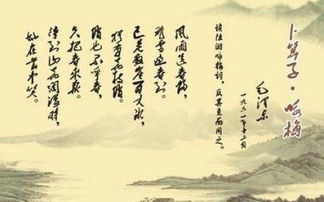 卜算子·咏梅
毛泽东
一九六一年十二月
读陆游咏梅词,反其意而用之。
风雨送春归,
飞雪迎春到。
已是悬崖百丈冰,
犹有花枝俏。
俏也不争春,
只把春来报。
待到山花烂漫时,
她在丛中笑。